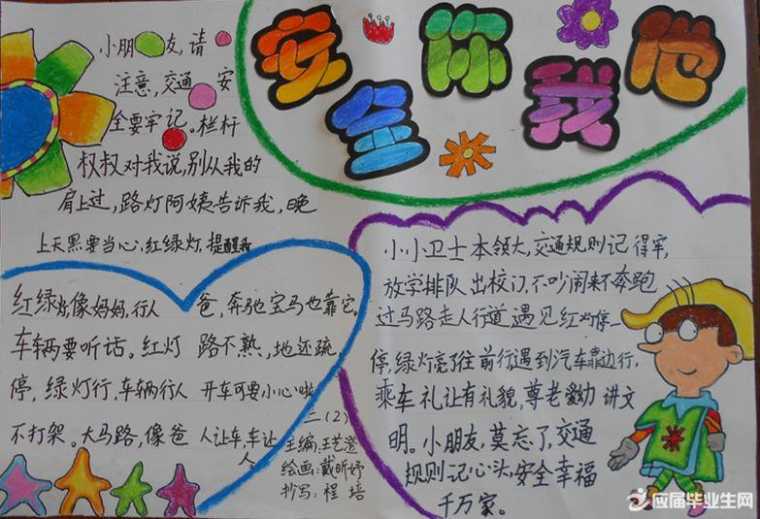 安全你我他
小朋友,请
注意,交通安
全要牢记。栏杆
叔叔对我说,别从我的
肩上过,路灯阿姨告诉我,晚
上天黑要当心,红绿灯,提醒我
红绿
像妈妈,行人
车辆要听话。红灯
停,绿灯行,车辆行人
不打架。大马路,像爸
爸,奔驰宝马也靠它。
路不熟,地还疏,
开车可要小心啦
人让车,车让
人。
三(2)
主编:王艺
绘画:戴昕妤
抄写:程培
小小卫士本领大,交通规则记得牢,
放学排队出校门,不吵闹来不奔跑
过马路走人行道遇见红灯停一
停,绿灯亮了往前行遇到汽车靠边行,
乘车礼让有礼貌,尊老爱幼讲文
明。小朋友,莫忘了,交通
规则记心头,安全幸福
千万家。
应届毕业生网